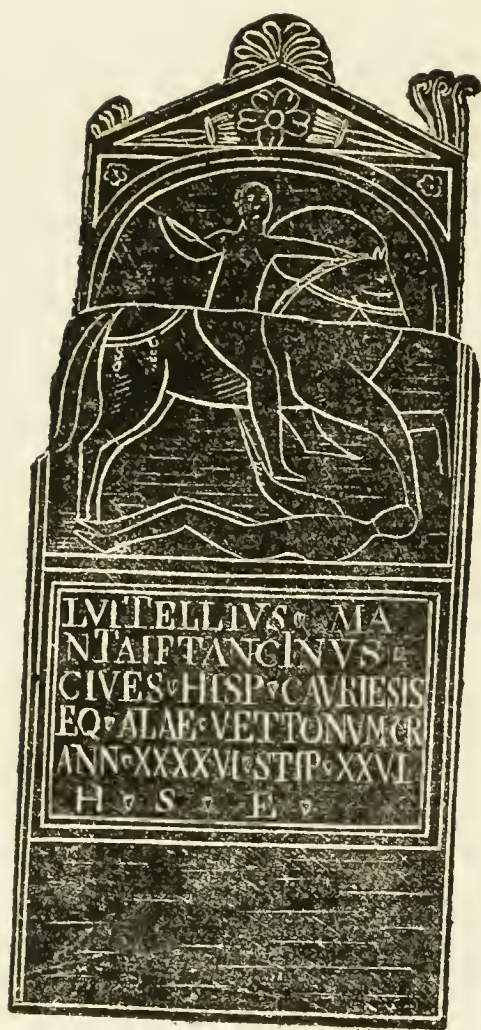 LVITELLIVS MA
NTAI F TANCINVS
CIVES HISP CAVRIESIS
EQ ALAE VETTONVM CR
ANN XXXXVI STIP XXVI
H S E